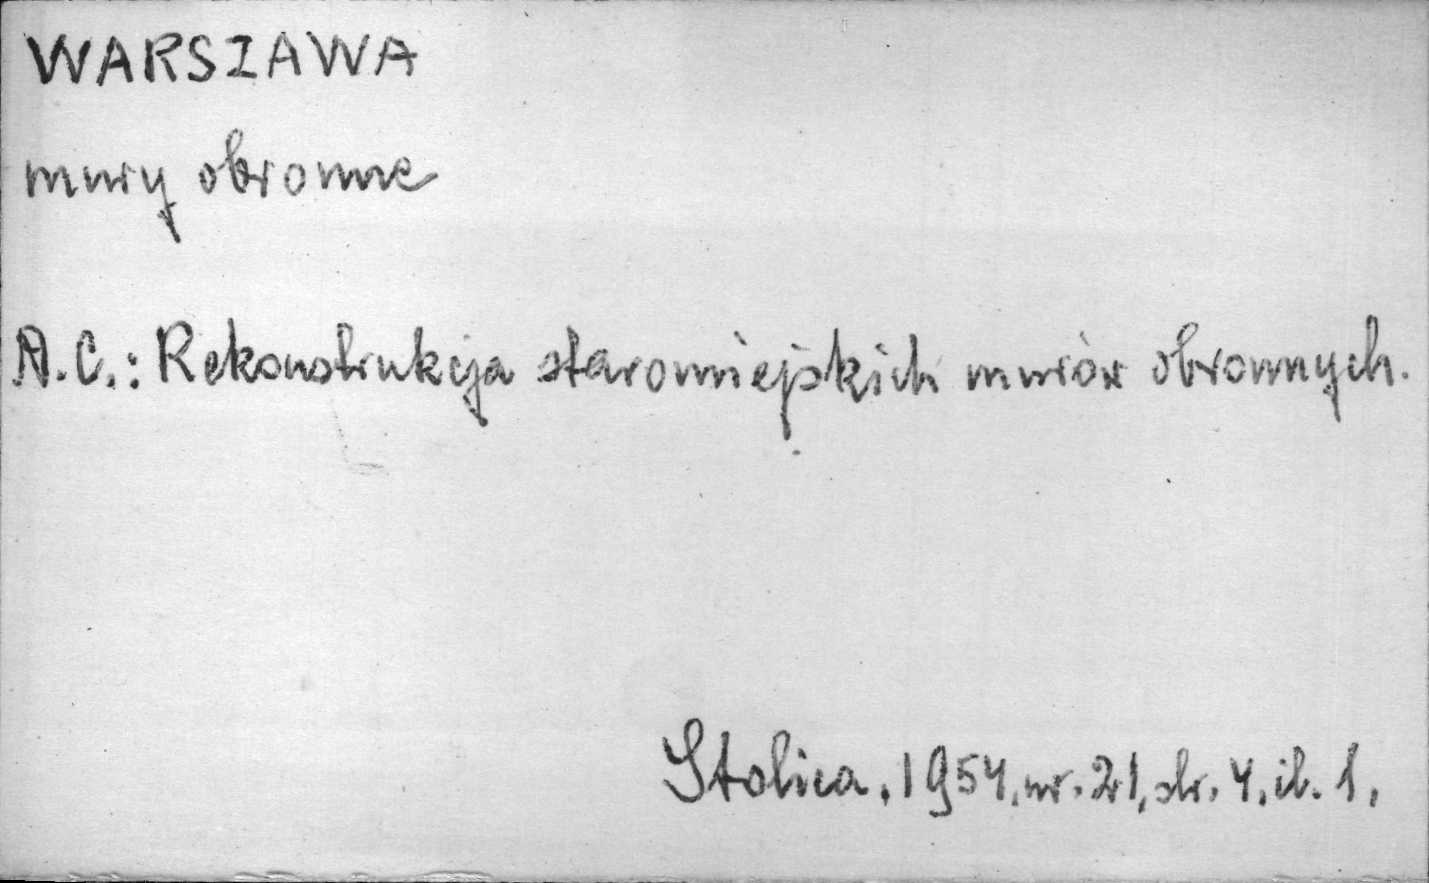 WARSZAWA
mury obronne
A.C.: Rekonstrukcja staromiejskich murów obronnych.
Stolica, 1954, nr. 21, str. 4, il. 1,